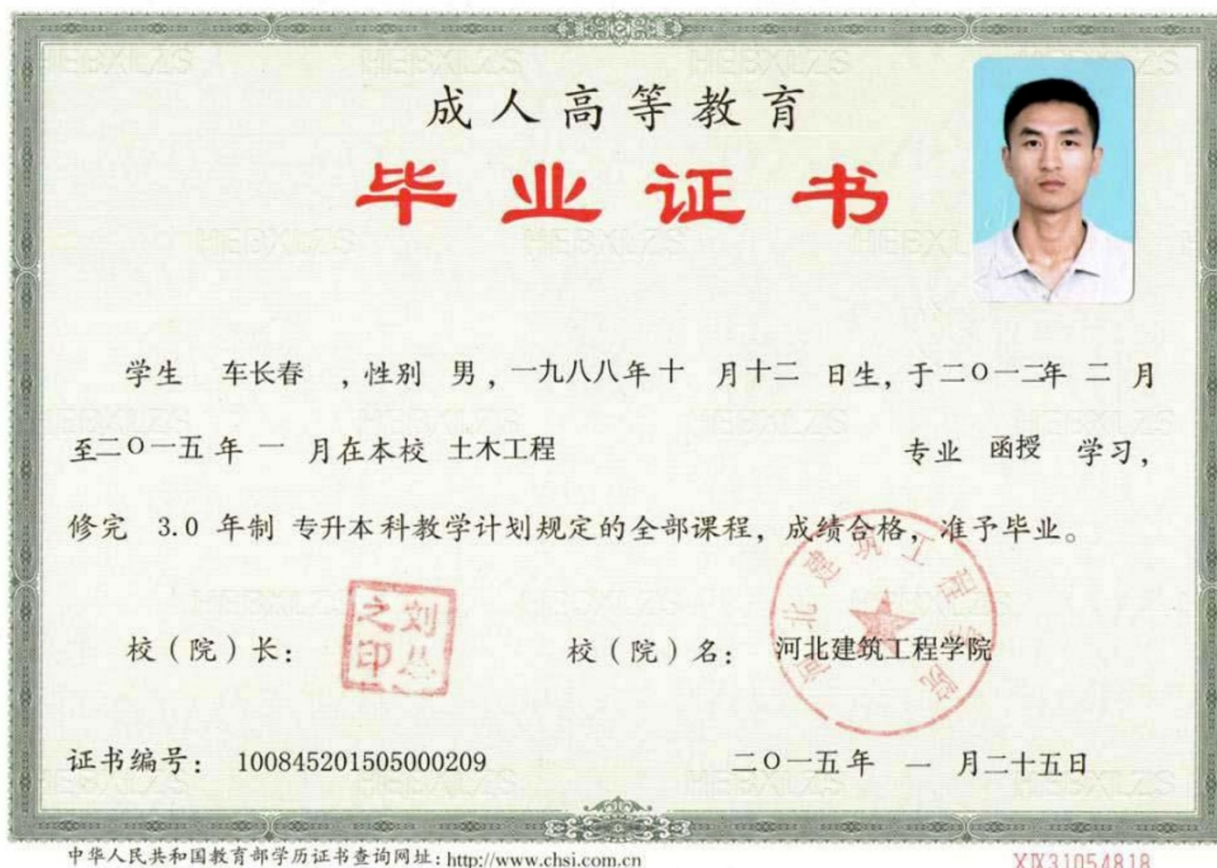 成人高等教育
毕业证书
学生 车长春 ，性别 男，一九八八年十 月十二 日生，于二〇一二年 二 月
至二〇一五年 一 月在本校 土木工程 专业 函授 学习，
修完 3.0 年制 专升本科教学计划规定的全部课程，成绩合格，准予毕业。
校（院）长： 刘丛之印
校（院）名： 河北建筑工程学院
河北建筑工程学院
证书编号： 100845201505000209 二〇一五年 一 月二十五日
中华人民共和国教育部学历证书查询网址：http://www.chsi.com.cn
HEBXLZS